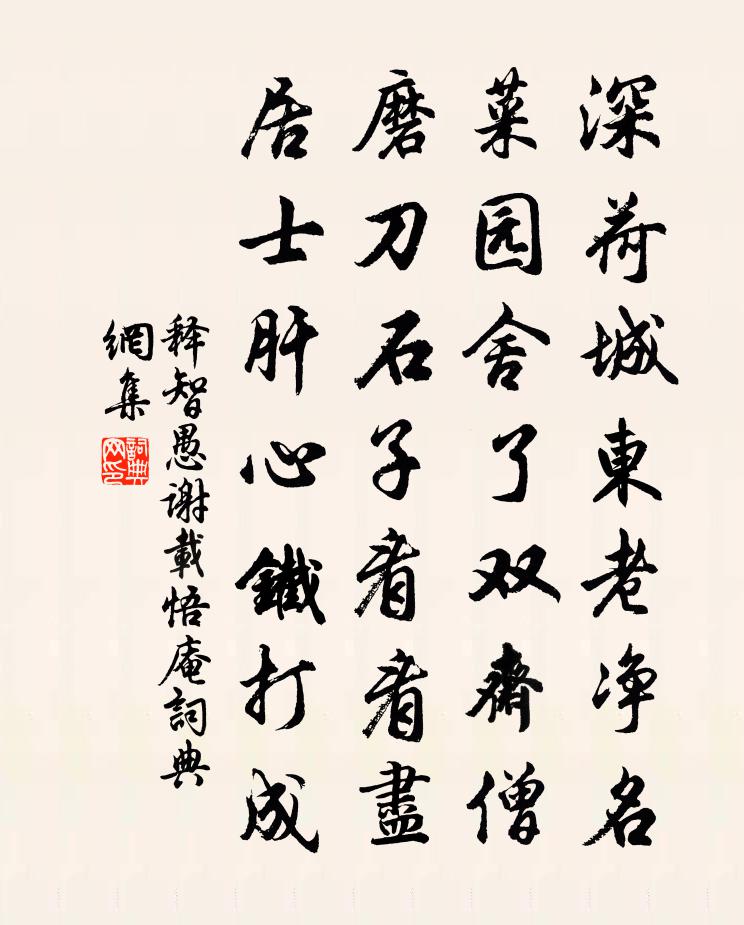 深荷城東老净名
菜园舍了双齋僧
磨刀石子看看盡
居士肝心鐵打成
释智愚谢載悟庵詞典
網集
詞典
网印